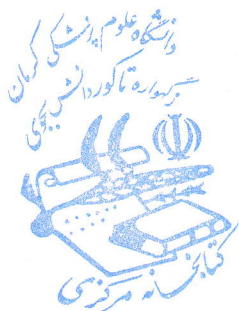 دانشگاه علوم پزشکی کرمان
تا گور دانش بجوی
کتابخانه مرکزی